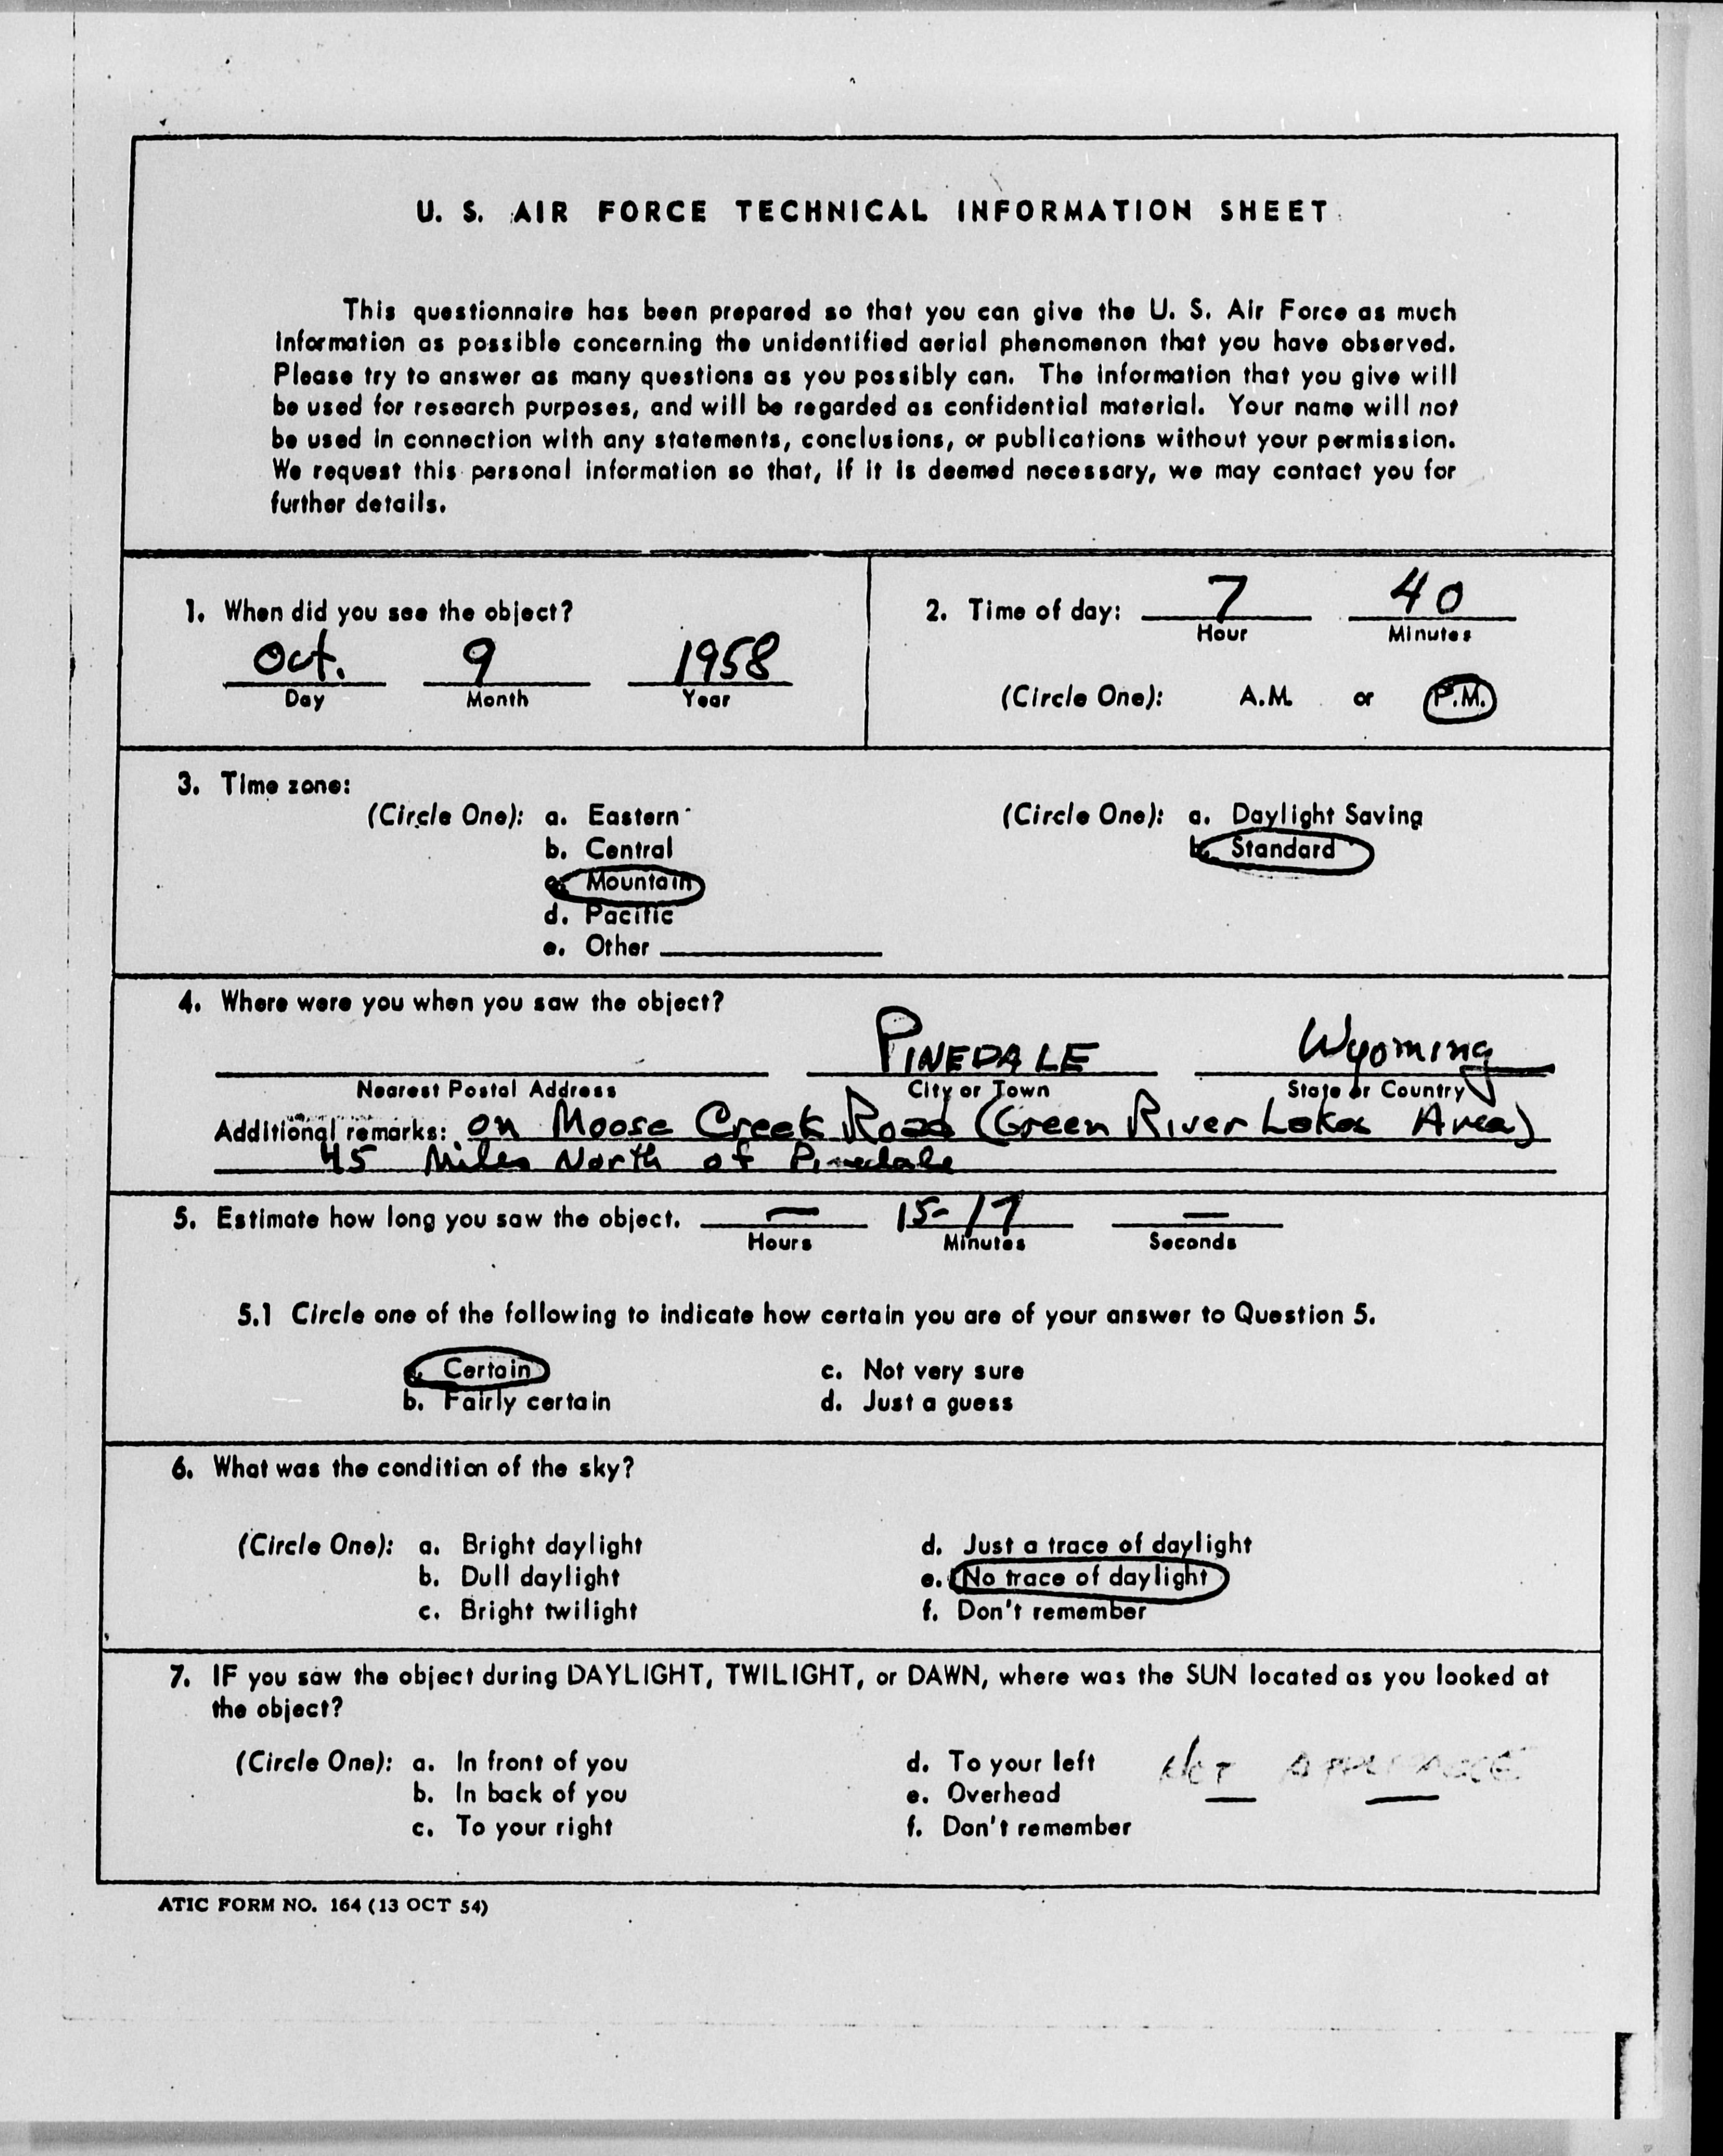 U. S. AIR FORCE TECHNICAL INFORMATION SHEET
This questionnaire has been prepared so that you can give the U. S. Air Force as much
information as possible concerning the unidentified aerial phenomenon that you have observed.
Please try to answer as many questions as you possibly can. The information that you give will
be used for research purposes, and will be regarded as confidential material. Your name will not
be used in connection with any statements, conclusions, or publications without your permission.
We request this personal information so that, if it is deemed necessary, we may contact you for
further details.
1. When did you see the object?
Oct. 9 1958
Day Month Year
2. Time of day: 7 40
Hour Minutes
(Circle One): A.M. or P.M.
3. Time zone:
(Circle One): a. Eastern (Circle One): a. Daylight Saving
b. Central b. Standard
c. Mountain
d. Pacific
e. Other
4. Where were you when you saw the object?
PINEDALE Wyoming
Nearest Postal Address City or Town State or Country
Additional remarks: on Moose Creek Road (Green River Lakes Area)
45 Miles North of Pinedale
5. Estimate how long you saw the object. — 15-17 —
Hours Minutes Seconds
5.1 Circle one of the following to indicate how certain you are of your answer to Question 5.
a. Certain c. Not very sure
b. Fairly certain d. Just a guess
6. What was the condition of the sky?
(Circle One): a. Bright daylight d. Just a trace of daylight
b. Dull daylight e. No trace of daylight
c. Bright twilight f. Don't remember
7. IF you saw the object during DAYLIGHT, TWILIGHT, or DAWN, where was the SUN located as you looked at
the object?
(Circle One): a. In front of you d. To your left NOT
b. In back of you e. Overhead
c. To your right f. Don't remember
ATIC FORM NO. 164 (13 OCT 54)